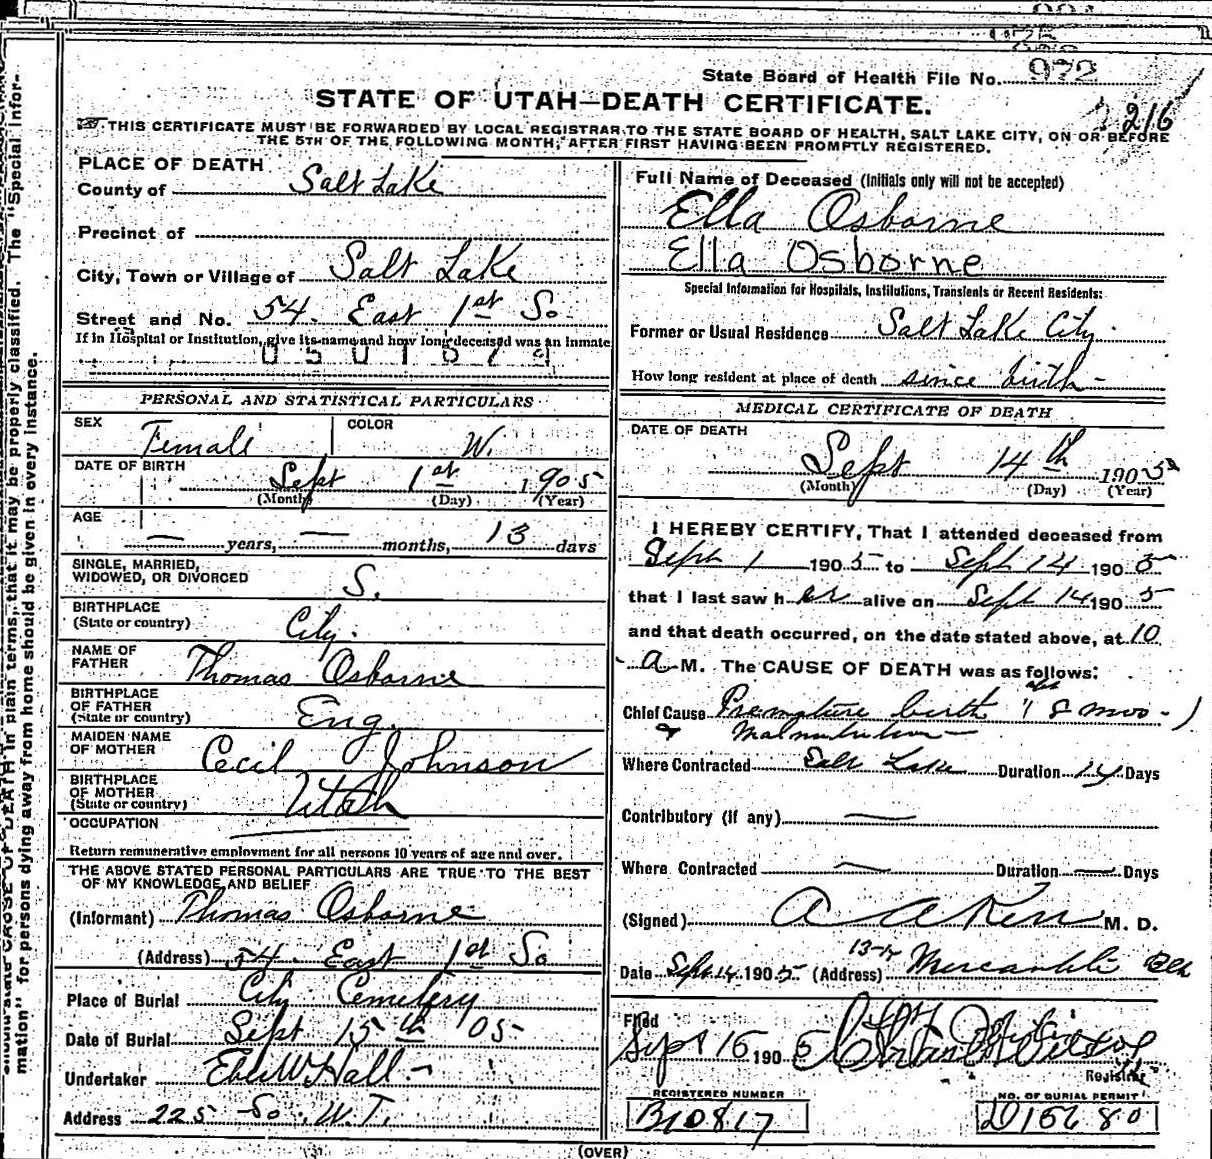 972
State Board of Health File No.
STATE OF UTAH—DEATH CERTIFICATE.
216
THIS CERTIFICATE MUST BE FORWARDED BY LOCAL REGISTRAR TO THE STATE BOARD OF HEALTH, SALT LAKE CITY, ON OR BEFORE
THE 5TH OF THE FOLLOWING MONTH, AFTER FIRST HAVING BEEN PROMPTLY REGISTERED.
PLACE OF DEATH
County of Salt Lake
Precinct of
City, Town or Village of Salt Lake
Street and No. 54. East 1st So.
If in Hospital or Institution, give its name and how long deceased was an inmate
PERSONAL AND STATISTICAL PARTICULARS
SEX Female COLOR W.
DATE OF BIRTH
Sept 1st 1905
(Month) (Day) (Year)
AGE
— years, — months, 13 days
SINGLE, MARRIED,
WIDOWED, OR DIVORCED S.
BIRTHPLACE
(State or country) City.
NAME OF
FATHER Thomas Osborne
BIRTHPLACE
OF FATHER
(State or country) Eng.
MAIDEN NAME
OF MOTHER Cecil Johnson
BIRTHPLACE
OF MOTHER
(State or country) Utah
OCCUPATION
Return remunerative employment for all persons 10 years of age and over.
THE ABOVE STATED PERSONAL PARTICULARS ARE TRUE TO THE BEST
OF MY KNOWLEDGE AND BELIEF
(Informant) Thomas Osborne
(Address) 54. East 1st So
Place of Burial City Cemetery
Date of Burial Sept 15th '05
Undertaker Eber W Hall
Address 225 So. W.T.
Full Name of Deceased (Initials only will not be accepted)
Ella Osborne
Ella Osborne
Special Information for Hospitals, Institutions, Transients or Recent Residents:
Former or Usual Residence Salt Lake City.
How long resident at place of death since birth
MEDICAL CERTIFICATE OF DEATH
DATE OF DEATH
Sept 14th 1905
(Month) (Day) (Year)
I HEREBY CERTIFY, That I attended deceased from
Sept 1 1905 to Sept 14 1905
that I last saw her alive on Sept 14 1905
and that death occurred, on the date stated above, at 10
a M. The CAUSE OF DEATH was as follows:
Chief Cause Premature birth 8 mos
& Malnutrition
Where Contracted Salt Lake Duration 14 Days
Contributory (if any) —
Where Contracted — Duration — Days
(Signed) M. D.
Date Sept 14 1905 (Address) Mercantile Blk
Filed
Sept 16 1905
Registrar
REGISTERED NUMBER
B10817
NO. OF BURIAL PERMIT
D15680
(OVER)
CAUSE OF DEATH in plain terms, that it may be properly classified. The "Special Infor-
mation" for persons dying away from home should be given in every instance.